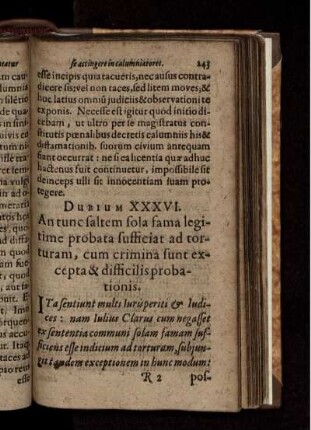 se accingere in calumniatores. 243
esse incipis quia tacueris, nec ausus contra-
dicere sis; vel non taces, sed litem moves; &
hoc latius omniū judiciis & observationi te
exponis. Necesse est igitur quod initio di-
cebam, ut ultro per se magistratus con-
stitutis pœnalibus decretis calumniis his &
diffamationib. suorum civium antequam
fiant occurrat: ne si ea licentia quæ adhuc
hactenus fuit continuetur, impossibile sit
deinceps ulli se innocentiam suam pro-
tegere.
DUBIUM XXXVI.
An tunc saltem sola fama legi-
time probata sufficiat ad tor-
turam, cum crimina sunt ex-
cepta & difficilis proba-
tionis.
ITa sentiunt multi Iurisperiti & Iudi-
ces: nam Iulius Clarus cum negasset
ex sententia communi solam famam suf-
ficiens esse indicium ad torturam, subjun-
git tandem exceptionem in hunc modum:
R 2 pos-